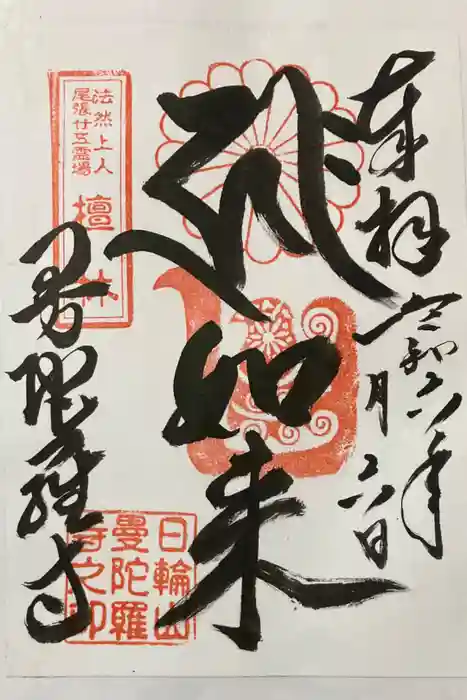 奉拝 令和六年
月六日
如来
法然上人
尾張廿五霊場
檀林
曼陀羅寺
日輪山
曼陀羅
寺之印